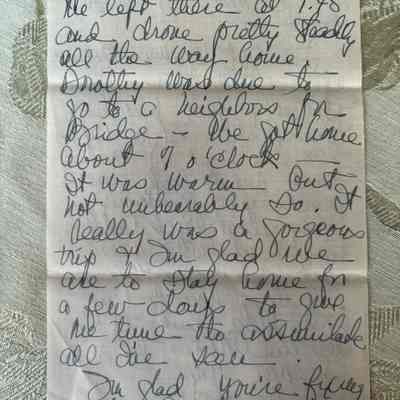 We left there at 1:45
and drove pretty steadily
all the way home.
Dorothy was due to
go to a neighbors for
Bridge - We got home
about 7 o'clock —
It was warm but
not unbearably so. It
really was a gorgeous
trip & I'm glad we
are to stay home for
a few days to give
me time to assimilate
all I've seen.
I'm glad you're fixing